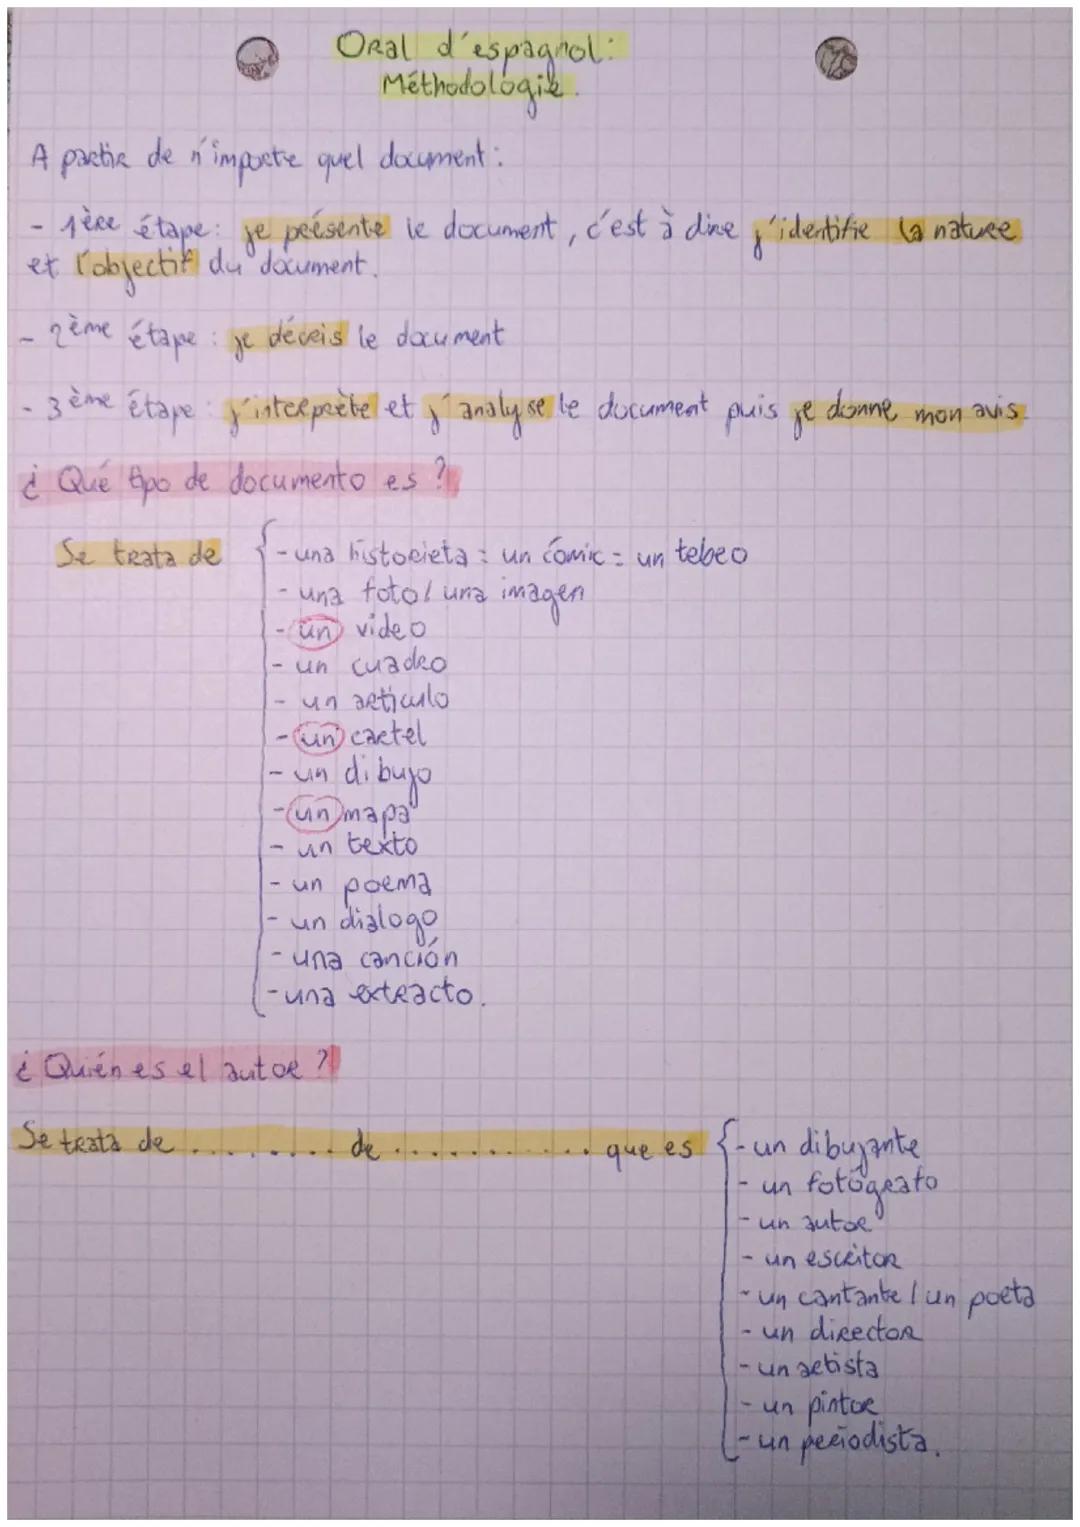 ORal d'espagnol:
Méthodologie.
A partir de n'importe quel document:
- 1ère étape: je présente le document, c'est à dire j'identifie la nature
et l'objectif du document.
- 2ème étape: je décris le document
- 3ème étape: j'interprète et j'analyse le document puis je donne mon avis.
¿ Qué tipo de documento es ?
Se trata de { - una historieta = un cómic = un tebeo
- una foto / una imagen
- un video
- un cuadro
- un articulo
- un cartel
- un dibujo
- un mapa
- un texto
- un poema
- un dialogo
- una canción
- una extracto.
¿ Quién es el autor ?
Se trata de ......... de ............ que es { - un dibujante
- un fotógrafo
- un autor
- un escritor
- un cantante / un poeta
- un director
- un artista
- un pintor
- un periodista.